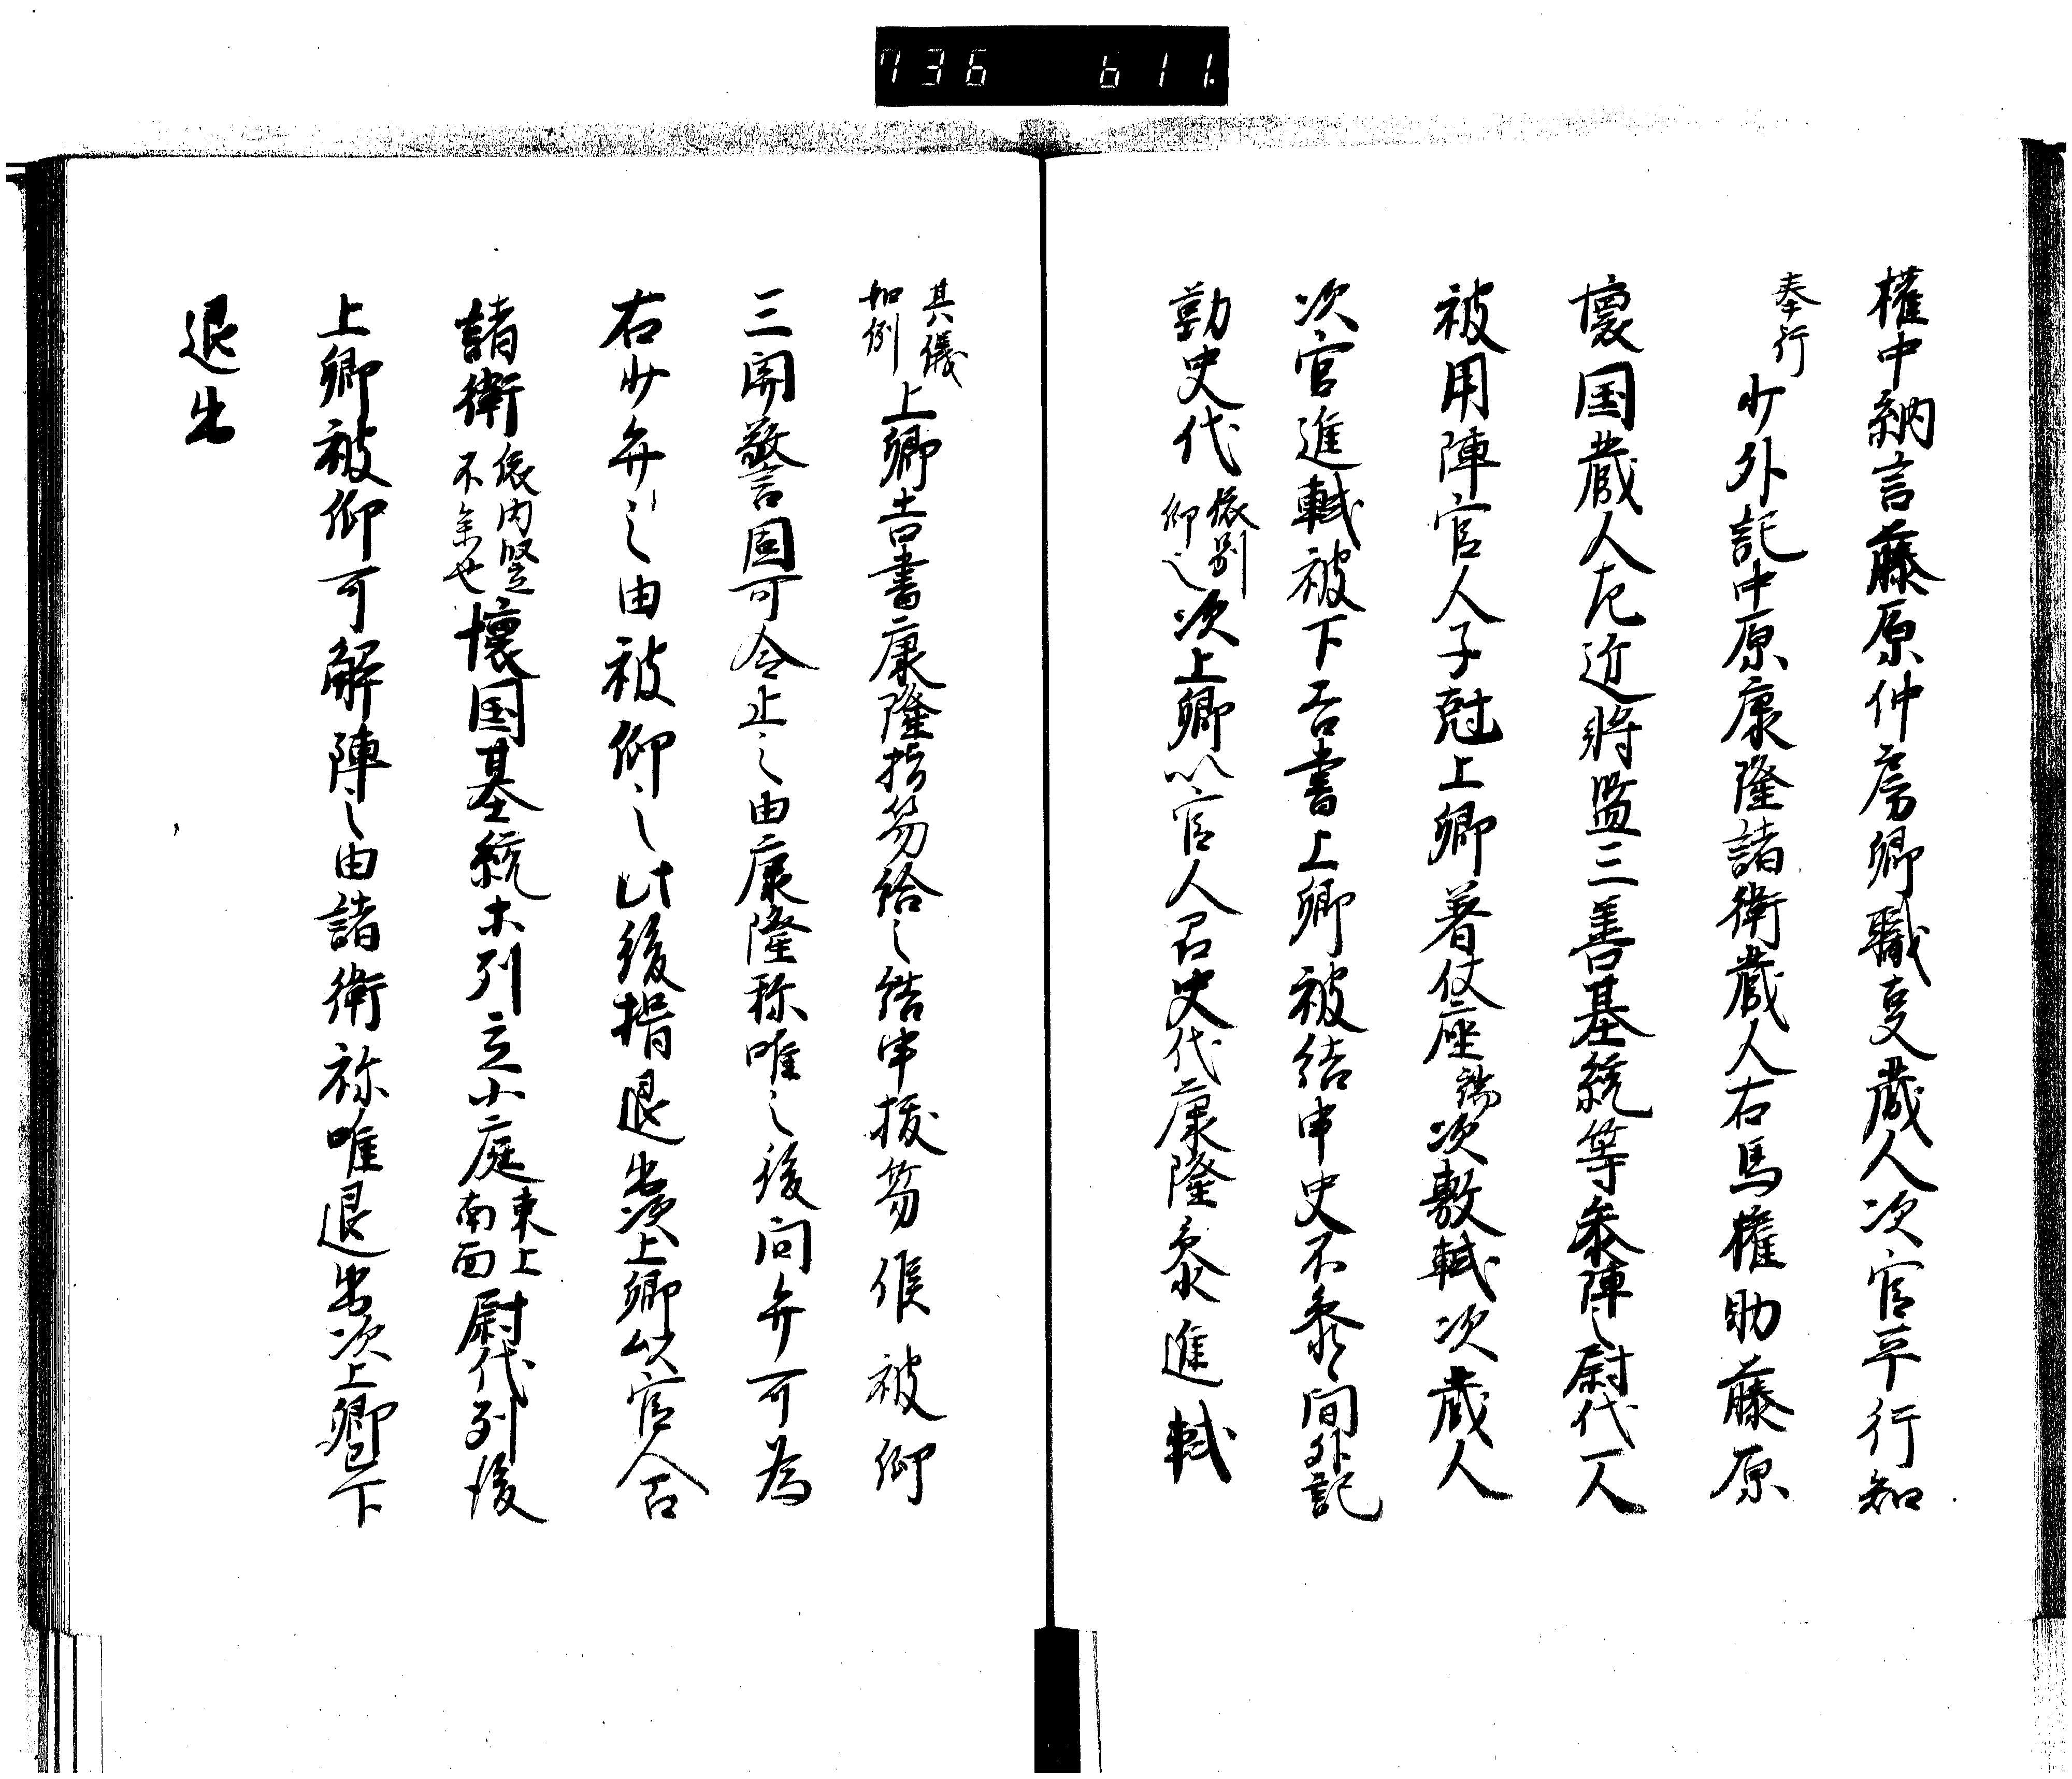 736 611.
權中納言藤原仲房卿職事蔵人次官平行知
奉行少外記中原康隆諸衛蔵人右馬權助藤原
懷国蔵人左近将監三善基統等参陣之尉代一人
被用陣官人子尅上卿著仗座端次敷軾次蔵人
次官進軾被下吉書上卿被結申史不参之間外記
勤史代依別仰之次上卿以官人召史代康隆参進軾
其儀如例上卿吉書康隆指笏給之結申拔笏候被仰
三関警固可令止之由康隆称唯之後問弁可為
右少弁之由被仰之此後揖退出次上卿以官人召
諸衛依内竪不参也懷国基統木列立小庭東上南面尉代列後
上卿被仰可解陣之由諸衛称唯退出次上卿已下
退出